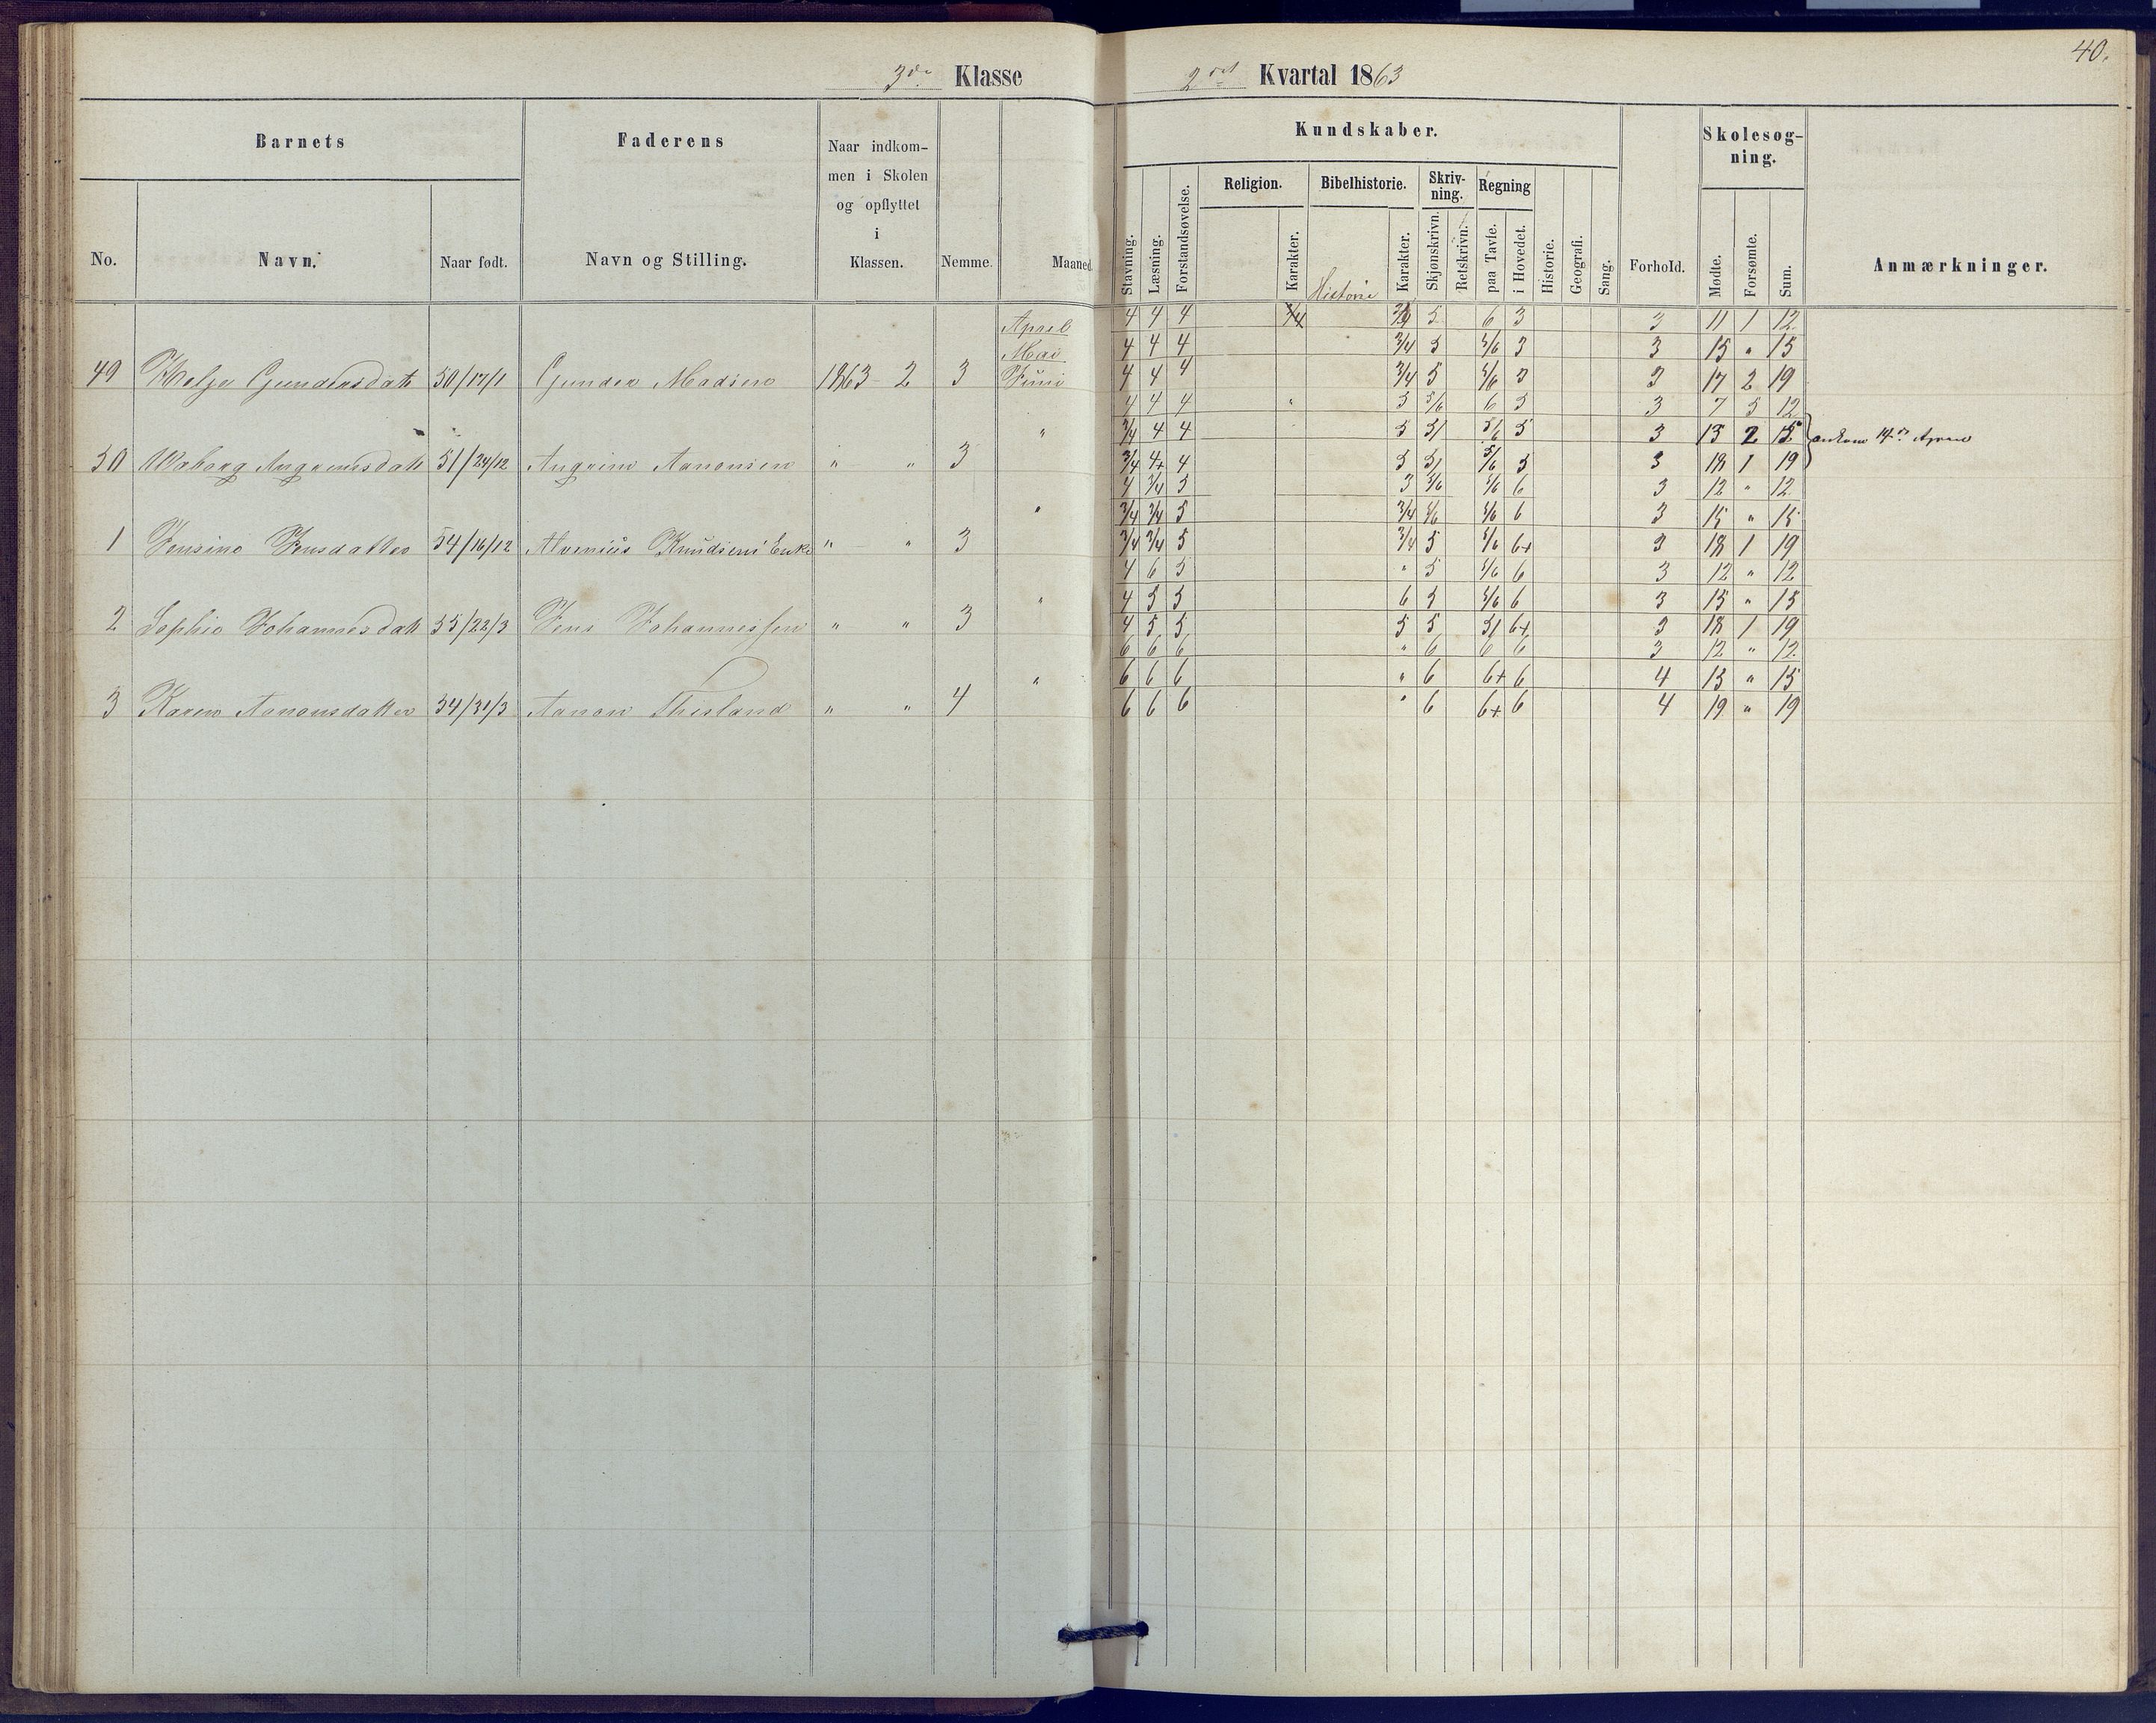 40.
3die Klasse
2det Kvartal 1863
Barnets
Faderens
Naar indkom-
men i Skolen
og opflyttet
i
Klassen.
No.
Navn.
Naar født.
Navn og Stilling.
Nemme.
Maaned.
Kundskaber.
Skolesog-
ning.
Stavning.
Læsning.
Forstandsøvelse.
Religion.
Karakter.
Bibelhistorie.
Historie
Karakter.
Skriv-
ning.
Skjønskrivn.
Retskrivn.
Regning
paa Tavle.
i Hovedet.
Historie.
Geografi.
Sang.
Forhold.
Mødte.
Forsømte.
Sum.
Anmærkninger.
April 4 4 4 5 6 3 3 11 1 12
Mai 4 4 4 3/4 5 5/6 3 3 15 " 15
49 Gundersdatt 50/17/1 Gunder Madsen 1863 2 3 Juni 4 4 4 3/4 5 5/6 3 3 17 2 19
4 4 4 " 5 5/6 6 5 3 7 5 12
" 3/4 4 4 5 5/6 5 3 13 2 15 ankom 14de April
50 51/24/12 Aanonsen " " 3 3/4 4+ 4 5 5/6 5 3 18 1 19
4 3/4 5 3 5/6 5/6 6 3 12 " 12
" 3/4 3/4 5 3/4 5/6 5/6 6 3 15 " 15
1 Jensine Jensdatter 54/16/12 Knudsens Enke " " 3 3/4 3/4 5 3/4 5 5/6 6+ 3 18 1 19
4 6 5 " 5 5/6 6 3 12 " 12
" 4 5 5 6 5 5/6 6 3 15 " 15
2 Sophie Johannesdatt 55/22/3 Jens Johannessen " " 3 4 5 5 5 5 6+ 3 18 1 19
6 6 6 " 6 6 6 3 12 " 12
" 6 6 6 " 6 6+ 6 4 15 " 15
3 Karen Aanonsdatter 54/31/3 Aanon " " 4 6 6 6 " 6 6+ 6 4 19 " 19